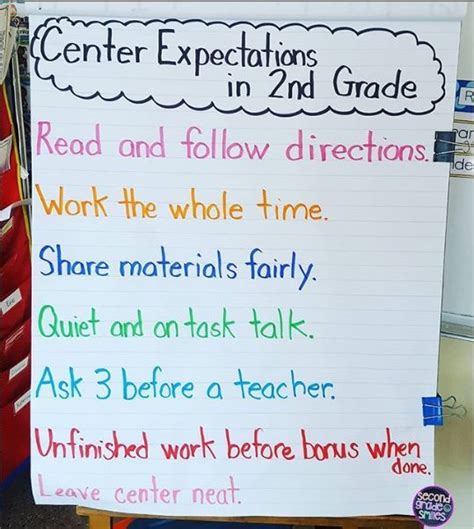 Center Expectations
in 2nd Grade
Read and follow directions.
Work the whole time.
Share materials fairly.
Quiet and on task talk.
Ask 3 before a teacher.
Unfinished work before bonus when
done.
Leave center neat.
second
grade
smiles